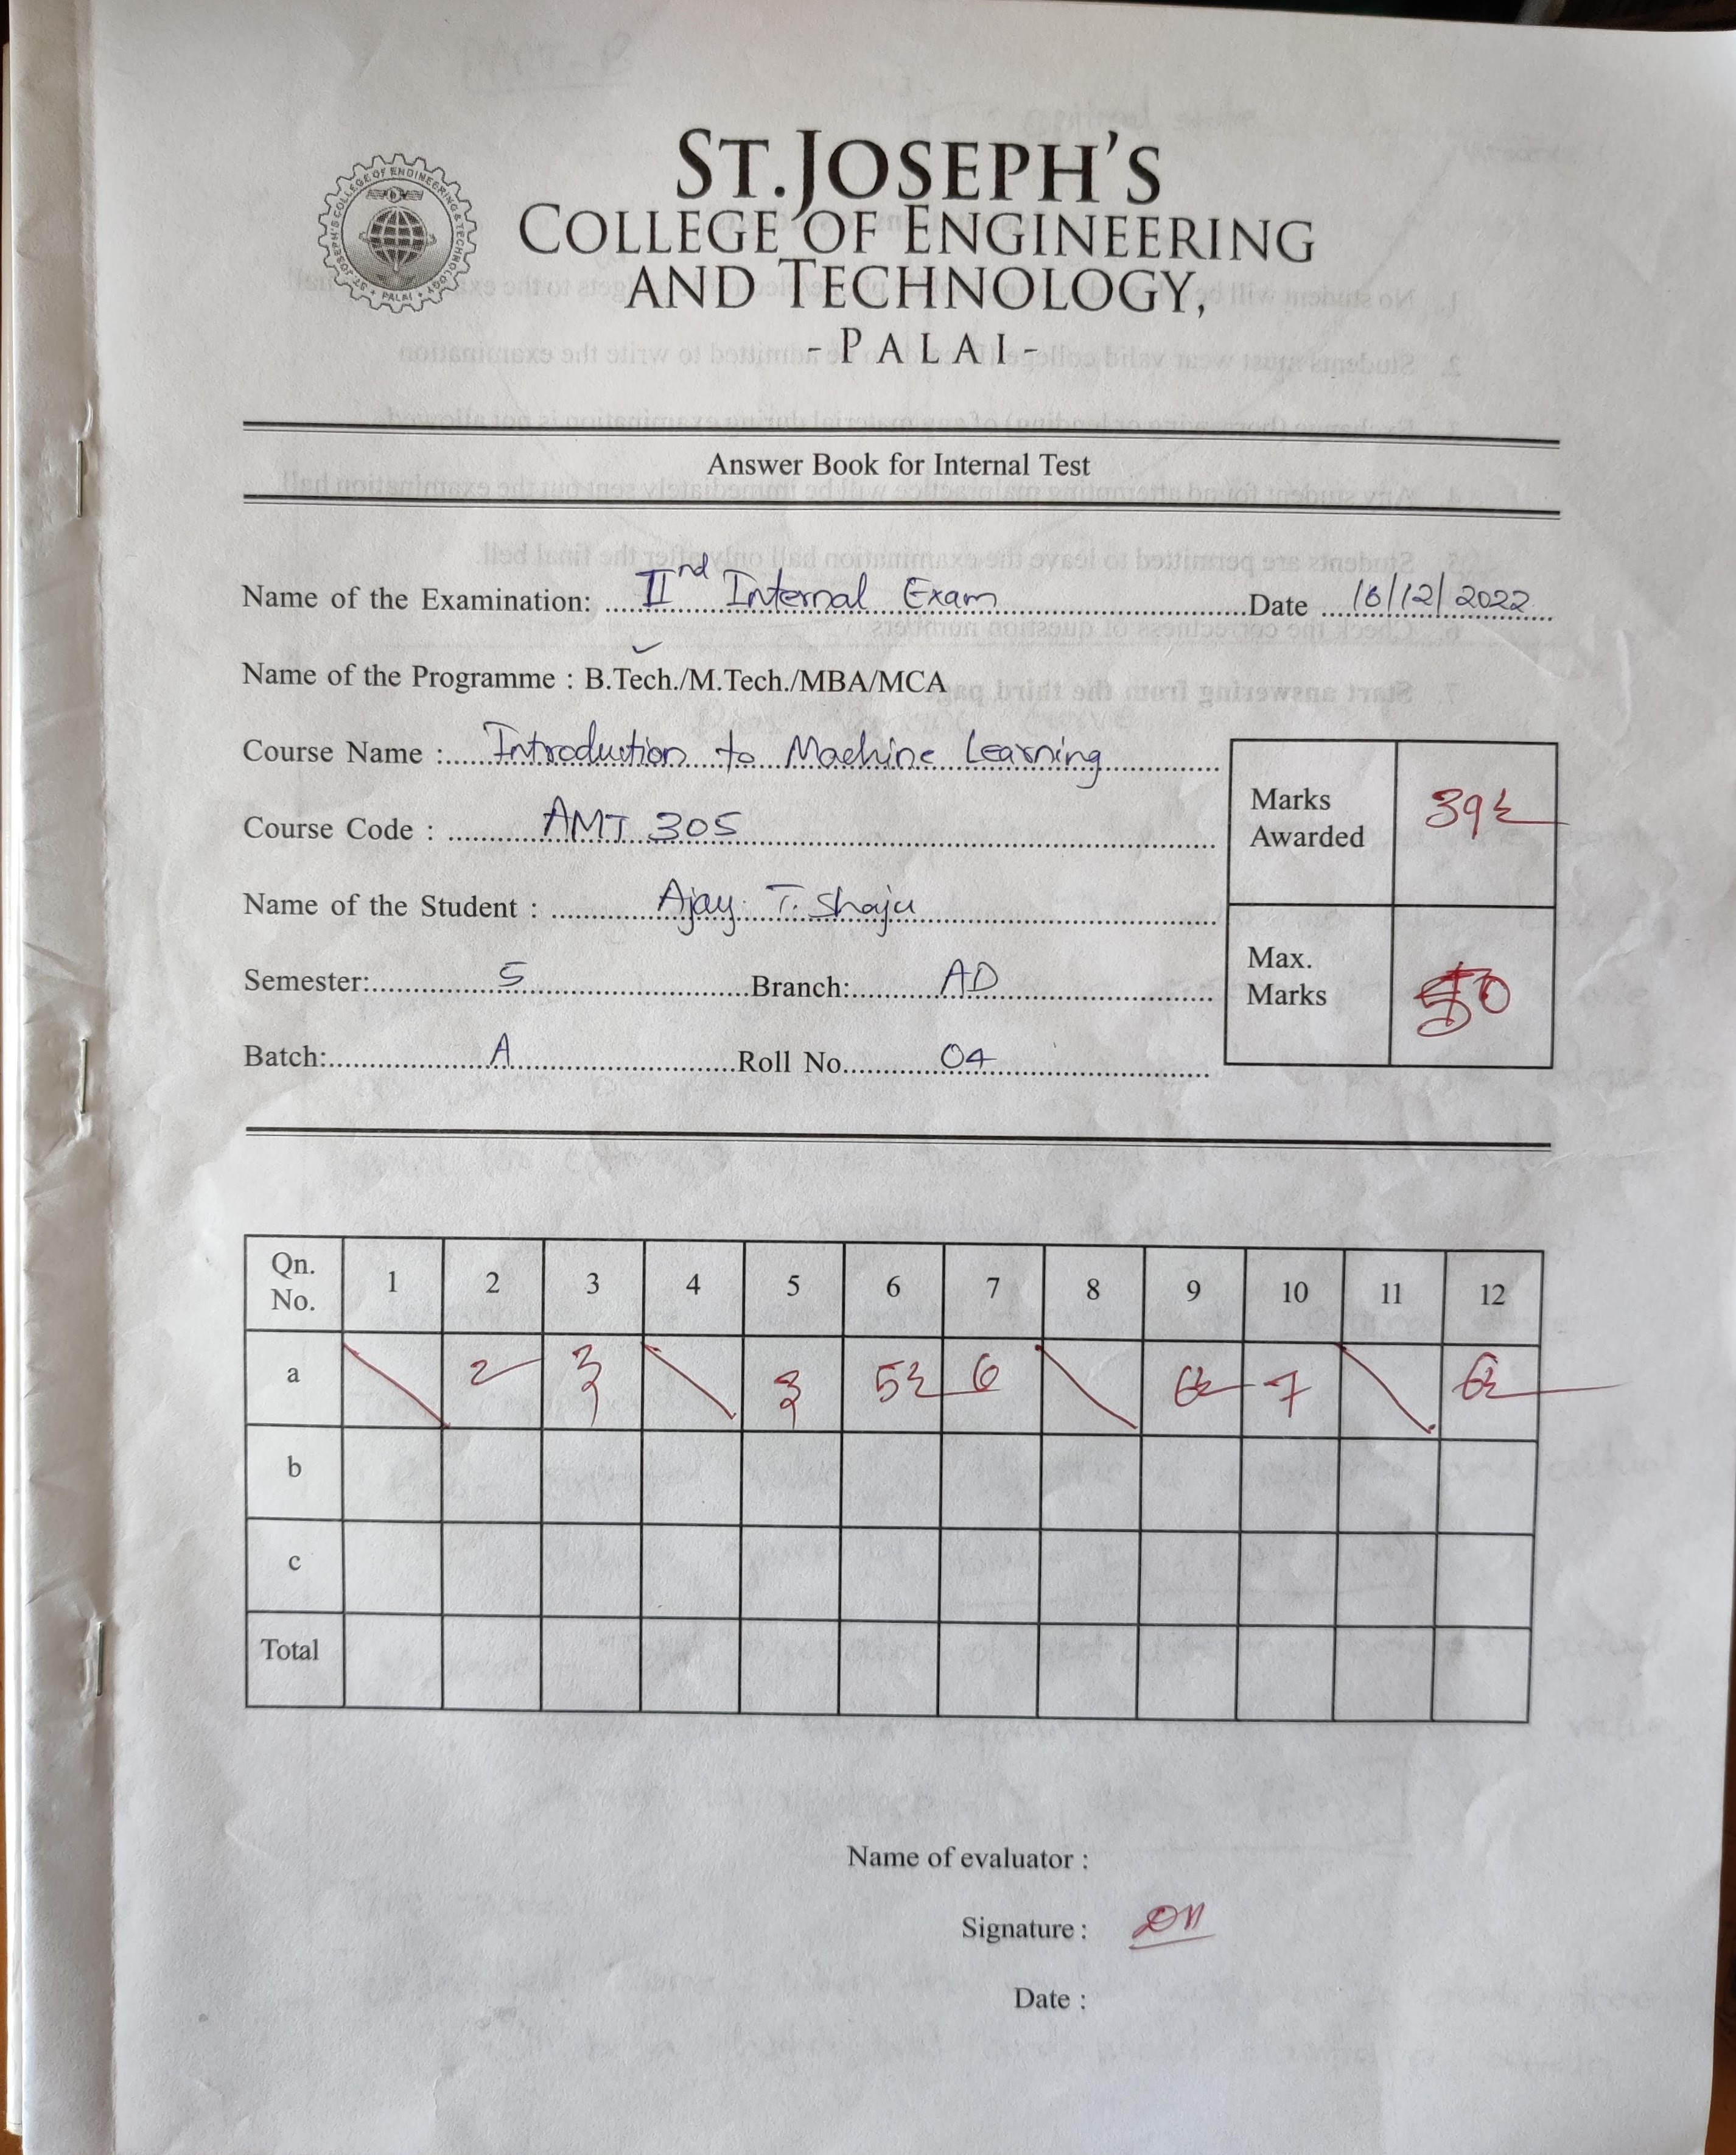 ST.JOSEPH'S
COLLEGE OF ENGINEERING
AND TECHNOLOGY,
-PALAI-
ST. JOSEPH'S COLLEGE OF ENGINEERING & TECHNOLOGY • PALAI •
Answer Book for Internal Test
Name of the Examination: IInd Internal Exam Date 16/12/2022
Name of the Programme : B.Tech./M.Tech./MBA/MCA
Course Name : Introduction to Machine Learning
Course Code : AMT 305
Name of the Student : Ajay T. Shaju
Semester: 5 Branch: AD
Batch: A Roll No. 04
Marks Awarded 39½
Max. Marks 50
Qn. No. 1 2 3 4 5 6 7 8 9 10 11 12
a 2 3 3 5½ 6 6½ 7 6½
b
c
Total
Name of evaluator :
Signature :
Date :